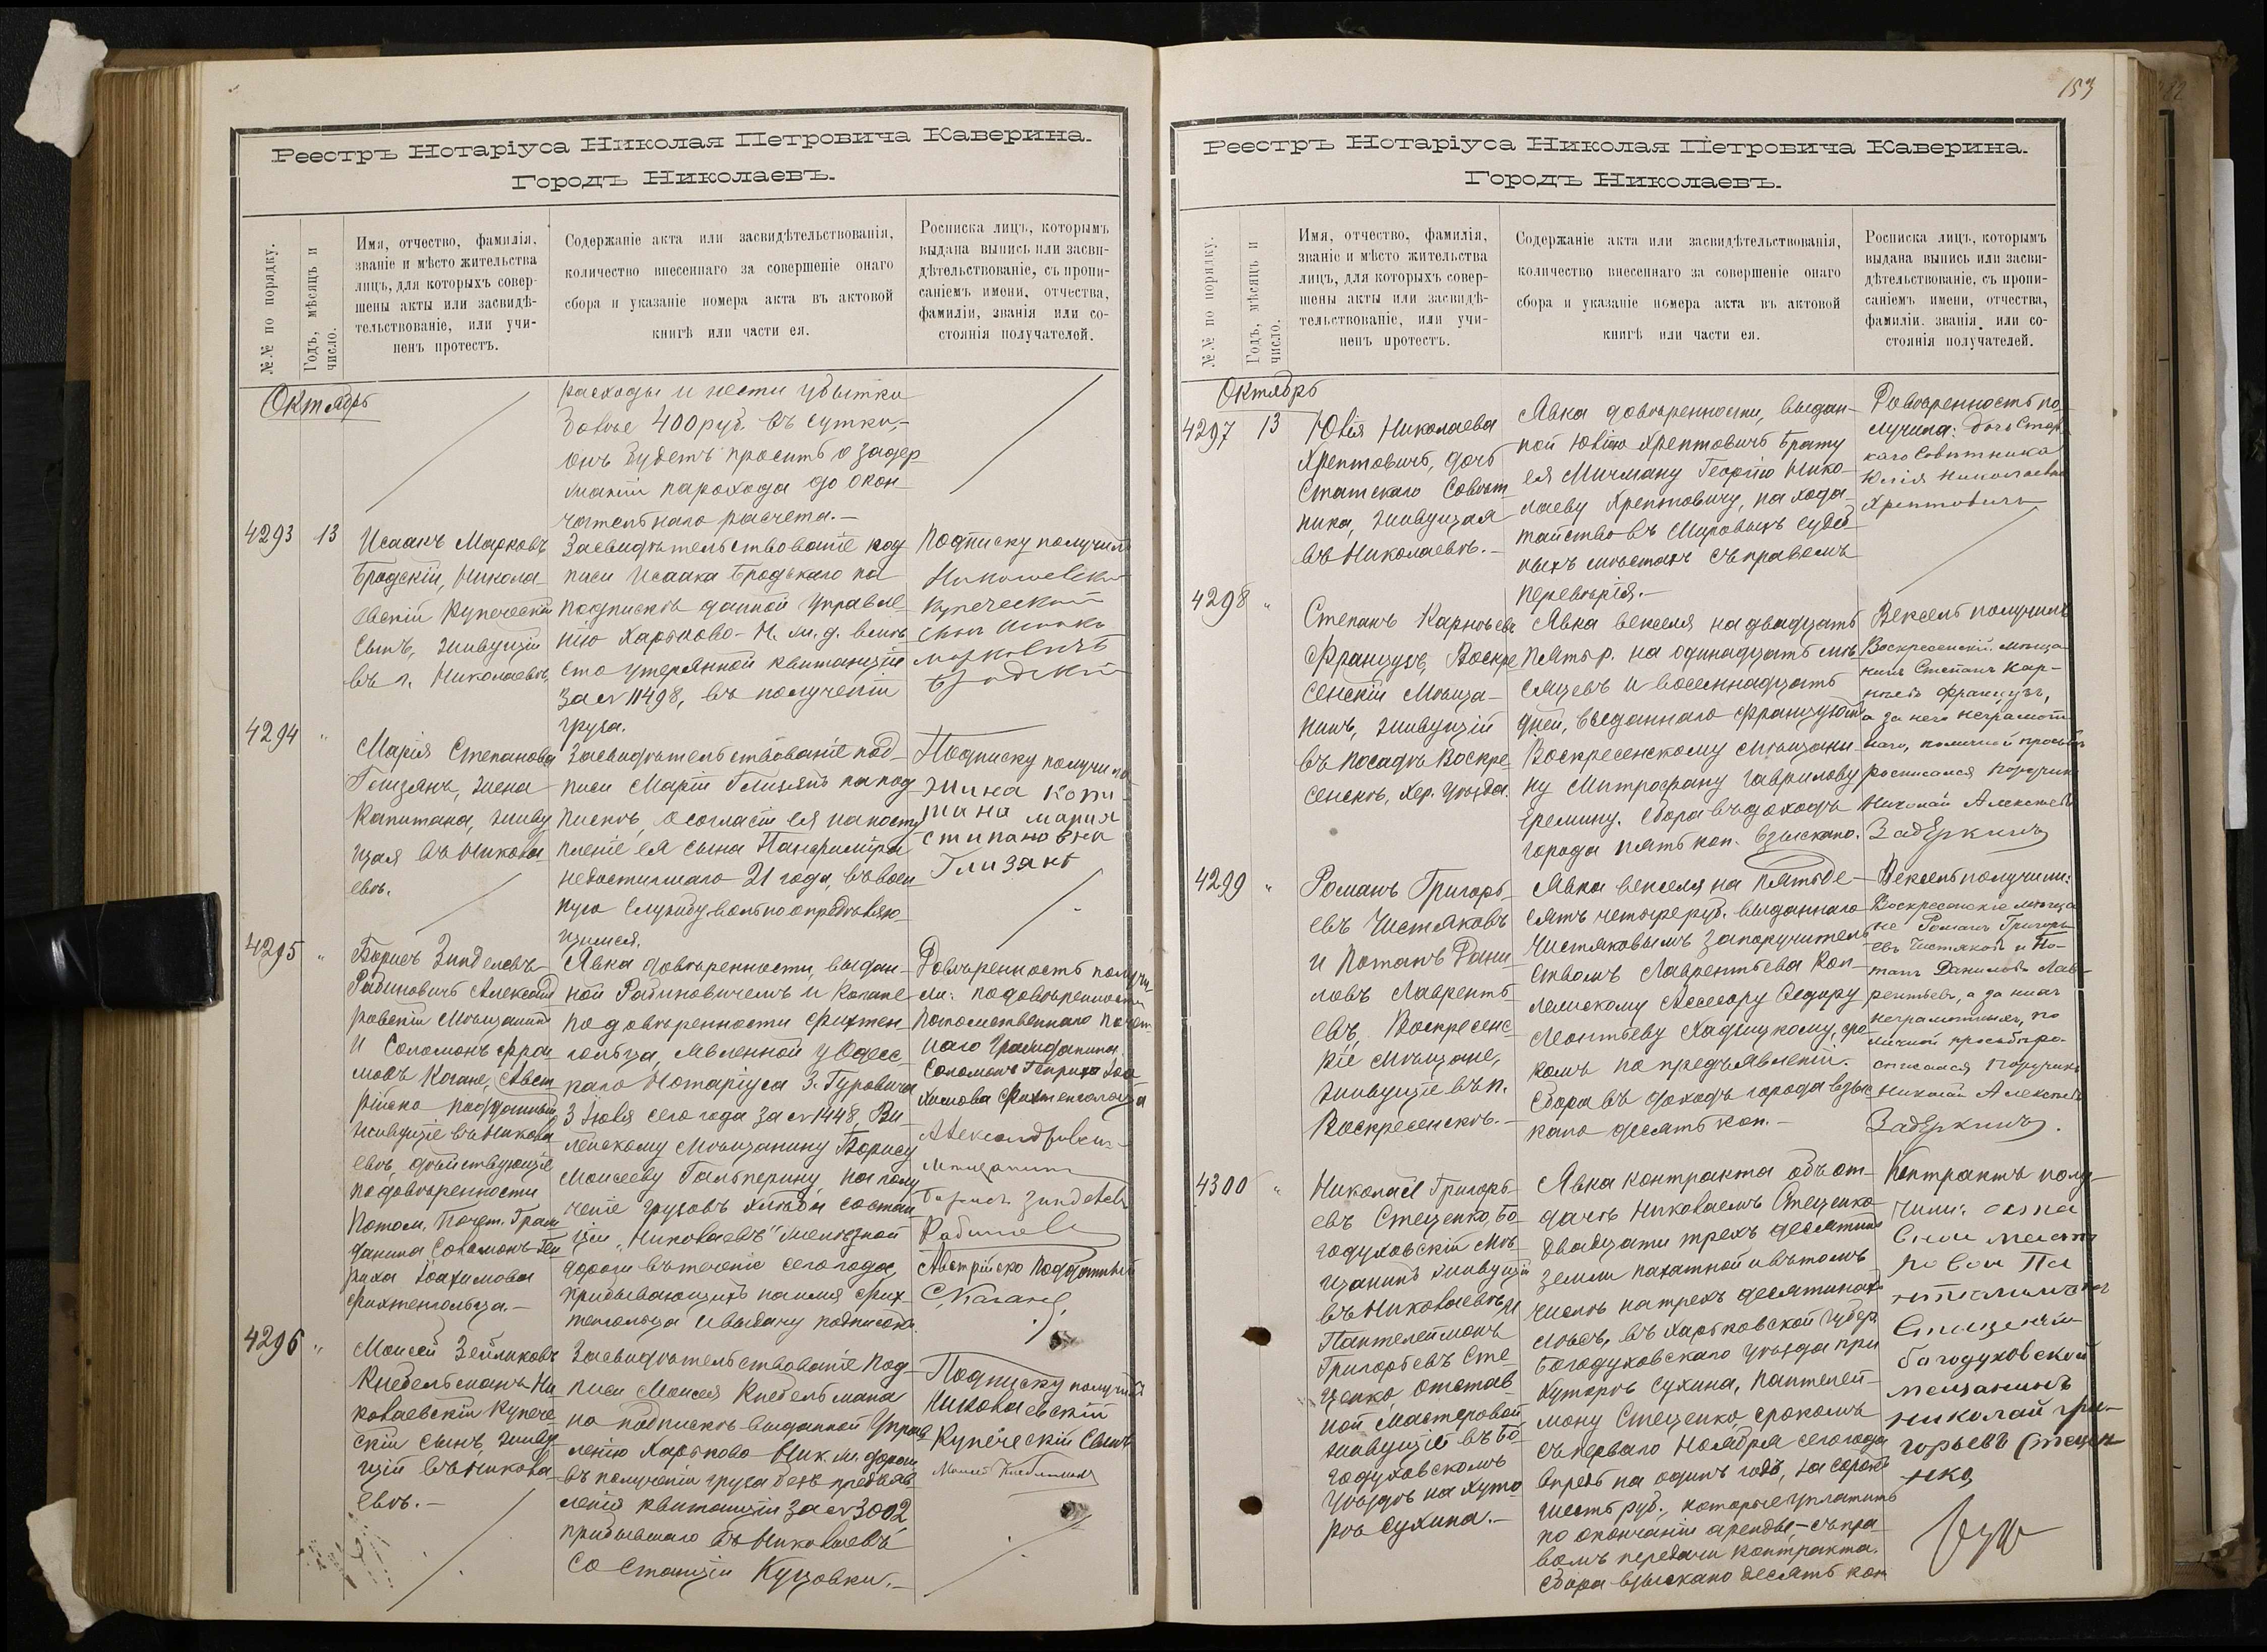 Реестръ Нотаріуса Николая Петровича Каверина.
Городъ Николаевъ.
№.№ по порядку.
Годъ, мѣсяцъ и
число.
Имя, отчество, фамилія,
званіе и мѣсто жительства
лицъ, для которыхъ совер-
шены акты или засвидѣ-
тельствованіе, или учи-
ненъ протестъ.
Содержаніе акта или засвидѣтельствованія,
количество внесеннаго за совершеніе онаго
сбора и указаніе номера акта въ актовой
книгѣ или части ея.
Росписка лицъ, которымъ
выдана выпись или засви-
дѣтельствованіе, съ пропи-
саніемъ имени, отчества,
фамиліи, званія или со-
стоянія получателей.
Октябрь
расходы и нести убытки
болѣе 400 руб. въ сутки,-
онъ будетъ просить о задер-
жаніи парохода до окон-
чательнаго расчета.-
4293 13
Исаакъ Марковъ
Бродскій, Никола
евскій Купеческій
сынъ, живущій
въ г. Николаевѣ,
Засвидѣтельствованіе под
писи Исаака Бродскаго на
подпискѣ данной Управле-
нію Харьково-Н. ж. д. вмѣ
сто утерянной квитанціи
за № 11498, въ полученіи
груза.
Подписку получилъ
Николаевскій
Купеческій
сынъ Исаакъ
Марковичъ
Бродскій
4294 "
Марія Степанова
Глизянъ, жена
Капитана, живу
щая въ Никола
евѣ.
Засвидѣтельствованіе под-
писи Маріи Глизянъ на под
пискѣ, о согласіи ея на посту
пленіе ея сына
недостигшаго 21 года, въ воен
ную службу вольноопредѣляю
щимся.
Подписку получила
жина капи
тана мария
стипановна
Глизянъ
4295 "
Борисъ Зинделевъ
Рабиновичъ Александ
ровскій Мѣщанинъ
и Соломонъ Фрои
мовъ Коганъ, Авст
рійско подданный
живущіе въ Никола
евѣ, дѣйствующіе
по довѣренности
Потом. Почет. Граж
данина Соломонъ-Ген
риха Іоахимова
Фихтенгольца.-
Явка довѣренности, выдан-
ной Рабиновичемъ и Когане
по довѣренности Фихтен
гольца, явленной у Одесс
каго Нотаріуса З. Гуровича
3 Іюля сего года за № 1448, Ви
ленскому мѣщанину Борису
Моисееву Гальперину, на полу
ченіе грузовъ хлѣба со стан
ціи „Николаевъ" желѣзной
дороги въ теченіе сего года,
прибывающихъ на имя Фих-
тенгольца и выдачу подписокъ.
Довѣренность получи-
ли: по довѣренности
Потомственнаго Почет
наго Гражданина
Соломонъ Генриха Іоа
химова Фихтенгольца
Александровскій
Мѣщанинъ
Борисъ Зинделевъ
Рабинов
Австрійско Подданный
С. Каганъ.
4296 "
Моисей Зейликовъ
Кнебельманъ Ни
колаевскій Купече
скій сынъ, живу
щій въ Никола
евѣ.-
Засвидѣтельствованіе под-
писи Моисея Кнебельмана
на подпискѣ выданной Управ
ленію Харьково-Ник. ж. дороги
въ полученіи груза безъ предъяв
ленія квитанціи за № 3002
прибывшаго въ Николаевъ
со станціи Куцовки.-
Подписку получилъ
Николаевскій
Купеческій Сынъ
Моисей Кнебельманъ
153
Реестръ Нотаріуса Николая Петровича Каверина.
Городъ Николаевъ.
№.№ по порядку.
Годъ, мѣсяцъ и
число.
Имя, отчество, фамилія,
званіе и мѣсто жительства
лицъ, для которыхъ совер-
шены акты или засвидѣ-
тельствованіе, или учи-
ненъ протестъ.
Содержаніе акта или засвидѣтельствованія,
количество внесеннаго за совершеніе онаго
сбора и указаніе номера акта въ актовой
книгѣ или части ея.
Росписка лицъ, которымъ
выдана выпись или засви-
дѣтельствованіе, съ пропи-
саніемъ имени, отчества,
фамиліи. званія или со-
стоянія получателей.
Октябрь
4297 13
Юлія Николаева
Хрептовичъ, дочь
Статскаго Совѣт
ника, живущая
въ Николаевѣ.-
Явка довѣренности, выдан-
ной Юліею Хрептовичъ брату
ея Мичману Георгію Нико-
лаеву Хрептовичу, на хода-
тайство въ Мировыхъ судеб
ныхъ мѣстахъ съ правомъ
перевѣрія.-
Довѣренность по
лучила: дочь Стат
скаго Совѣтника
Юлія Николаевна
Хрептовичъ
4298 "
Степанъ Карнѣевъ
Французъ, Воскре
сенскій Мѣща-
нинъ, живущій
въ посадѣ Воскре
сенскѣ, Хер. уѣзда.
Явка векселя на двадцать
пять р. на одинадцать мѣ
сяцевъ и восемнадцать
дней, выданнаго Французомъ
Воскресенскому мѣщани-
ну Митрофану Гаврилову
Еремину. Сбора въ доходъ
города пять коп. взыскано.
Вексель получилъ
Воскресенскій мѣща
нинъ Степанъ Кар-
нѣевъ Французъ,
а за него неграмот-
наго, по личной просьбѣ
росписался Поручикъ
Николай Алексѣевъ
Задёркинъ
4299 "
Романъ Григорь-
евъ Чистяковъ
и Потапъ Дани-
ловъ Лаврентъ
евъ, Воскресенс
кіе мѣщане,
живущіе въ п.
Воскресенскѣ.-
Явка векселя на пятьде-
сятъ четыре руб. выданнаго
Чистяковымъ за поручитель
ствомъ Лаврентьева Кол-
лежскому Ассесору Федору
Леонтьеву Хаджицкому, сро
комъ по предъявленіи.
Сбора въ доходъ города взыс
кано десять коп.-
Вексель получили:
Воскресенскіе мѣща
не Романъ Григорь
евъ Чистяковъ и По-
тапъ Даниловъ Лав-
рентьевъ, а за нихъ
неграмотныхъ, по
личной просьбѣ ро-
списался Поручикъ
Николай Алексѣевъ
Задёркинъ.
4300 "
Николай Григорь-
евъ Стеценко, Бо-
годуховскій мѣ-
щанинъ живущій
въ Николаевѣ и
Пантелеймонъ
Григорьевъ Сте
ценко, отстав
ной Мастеровой
живущій въ Бо-
годуховскомъ
уѣздѣ на хуто
рѣ Сухина.-
Явка контракта объ от-
дачѣ Николаемъ Стеценко-
двадцати трехъ десятинъ
земли пахатной и въ томъ
числѣ на трехъ десятинахъ
лѣсъ, въ Харьковской губер
Богодуховскаго уѣзда при
хуторѣ Сухина, Пантелей-
мону Стеценко, срокомъ
съ перваго Ноября сего года
впредь на одинъ годъ, за сорокъ
шесть руб., которые уплатить
по окончаніи аренды,-съ пра
вомъ передачи контракта.
Сбора взыскано десять коп
Контрактъ полу-
чили:
богодуховской
мещанинъ
николай гри-
горьевъ Стецен
нко